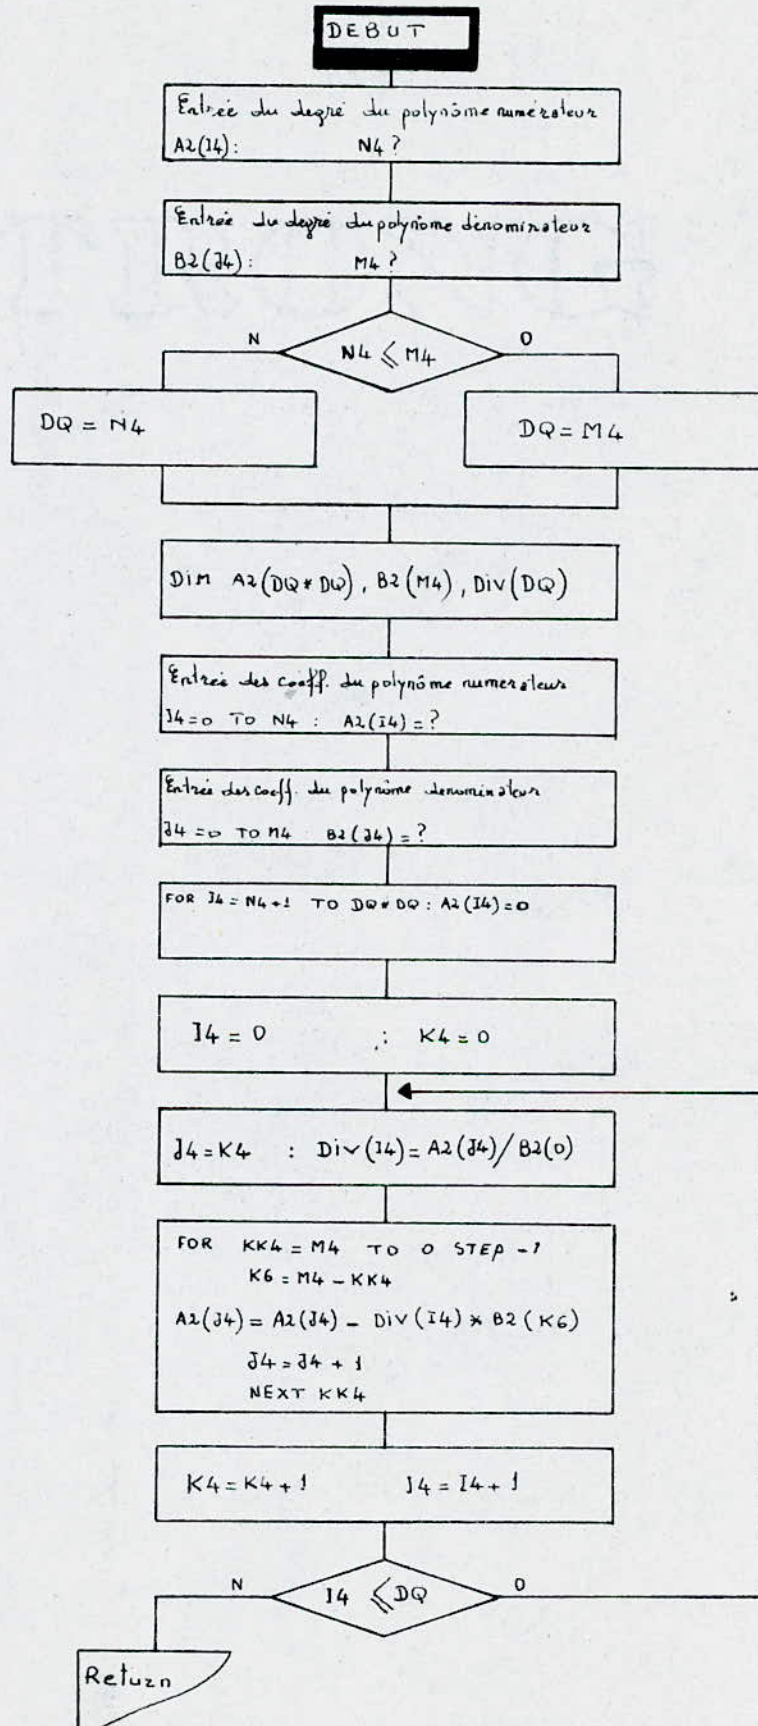 DEBUT
Entrée du degré du polynôme numérateur
A2(I4): N4 ?
Entrée du degré du polynôme dénominateur
B2(J4): M4 ?
N N4 ⩽ M4 O
DQ = N4
DQ = M4
DIM A2(DQ*DQ), B2(M4), Div(DQ)
Entrée des coeff. du polynôme numerateur
I4=0 TO N4 : A2(I4)=?
Entrée des coeff. du polynôme denominateur
J4=0 TO M4 B2(J4)=?
FOR I4=N4+1 TO DQ*DQ: A2(I4)=0
I4 = 0 : K4=0
J4=K4 : Div(I4)=A2(J4)/B2(0)
FOR KK4=M4 TO 0 STEP -1
K6=M4-KK4
A2(J4)=A2(J4)-Div(I4)*B2(K6)
J4=J4+1
NEXT KK4
K4=K4+1 I4=I4+1
N I4 ⩽DQ O
Return